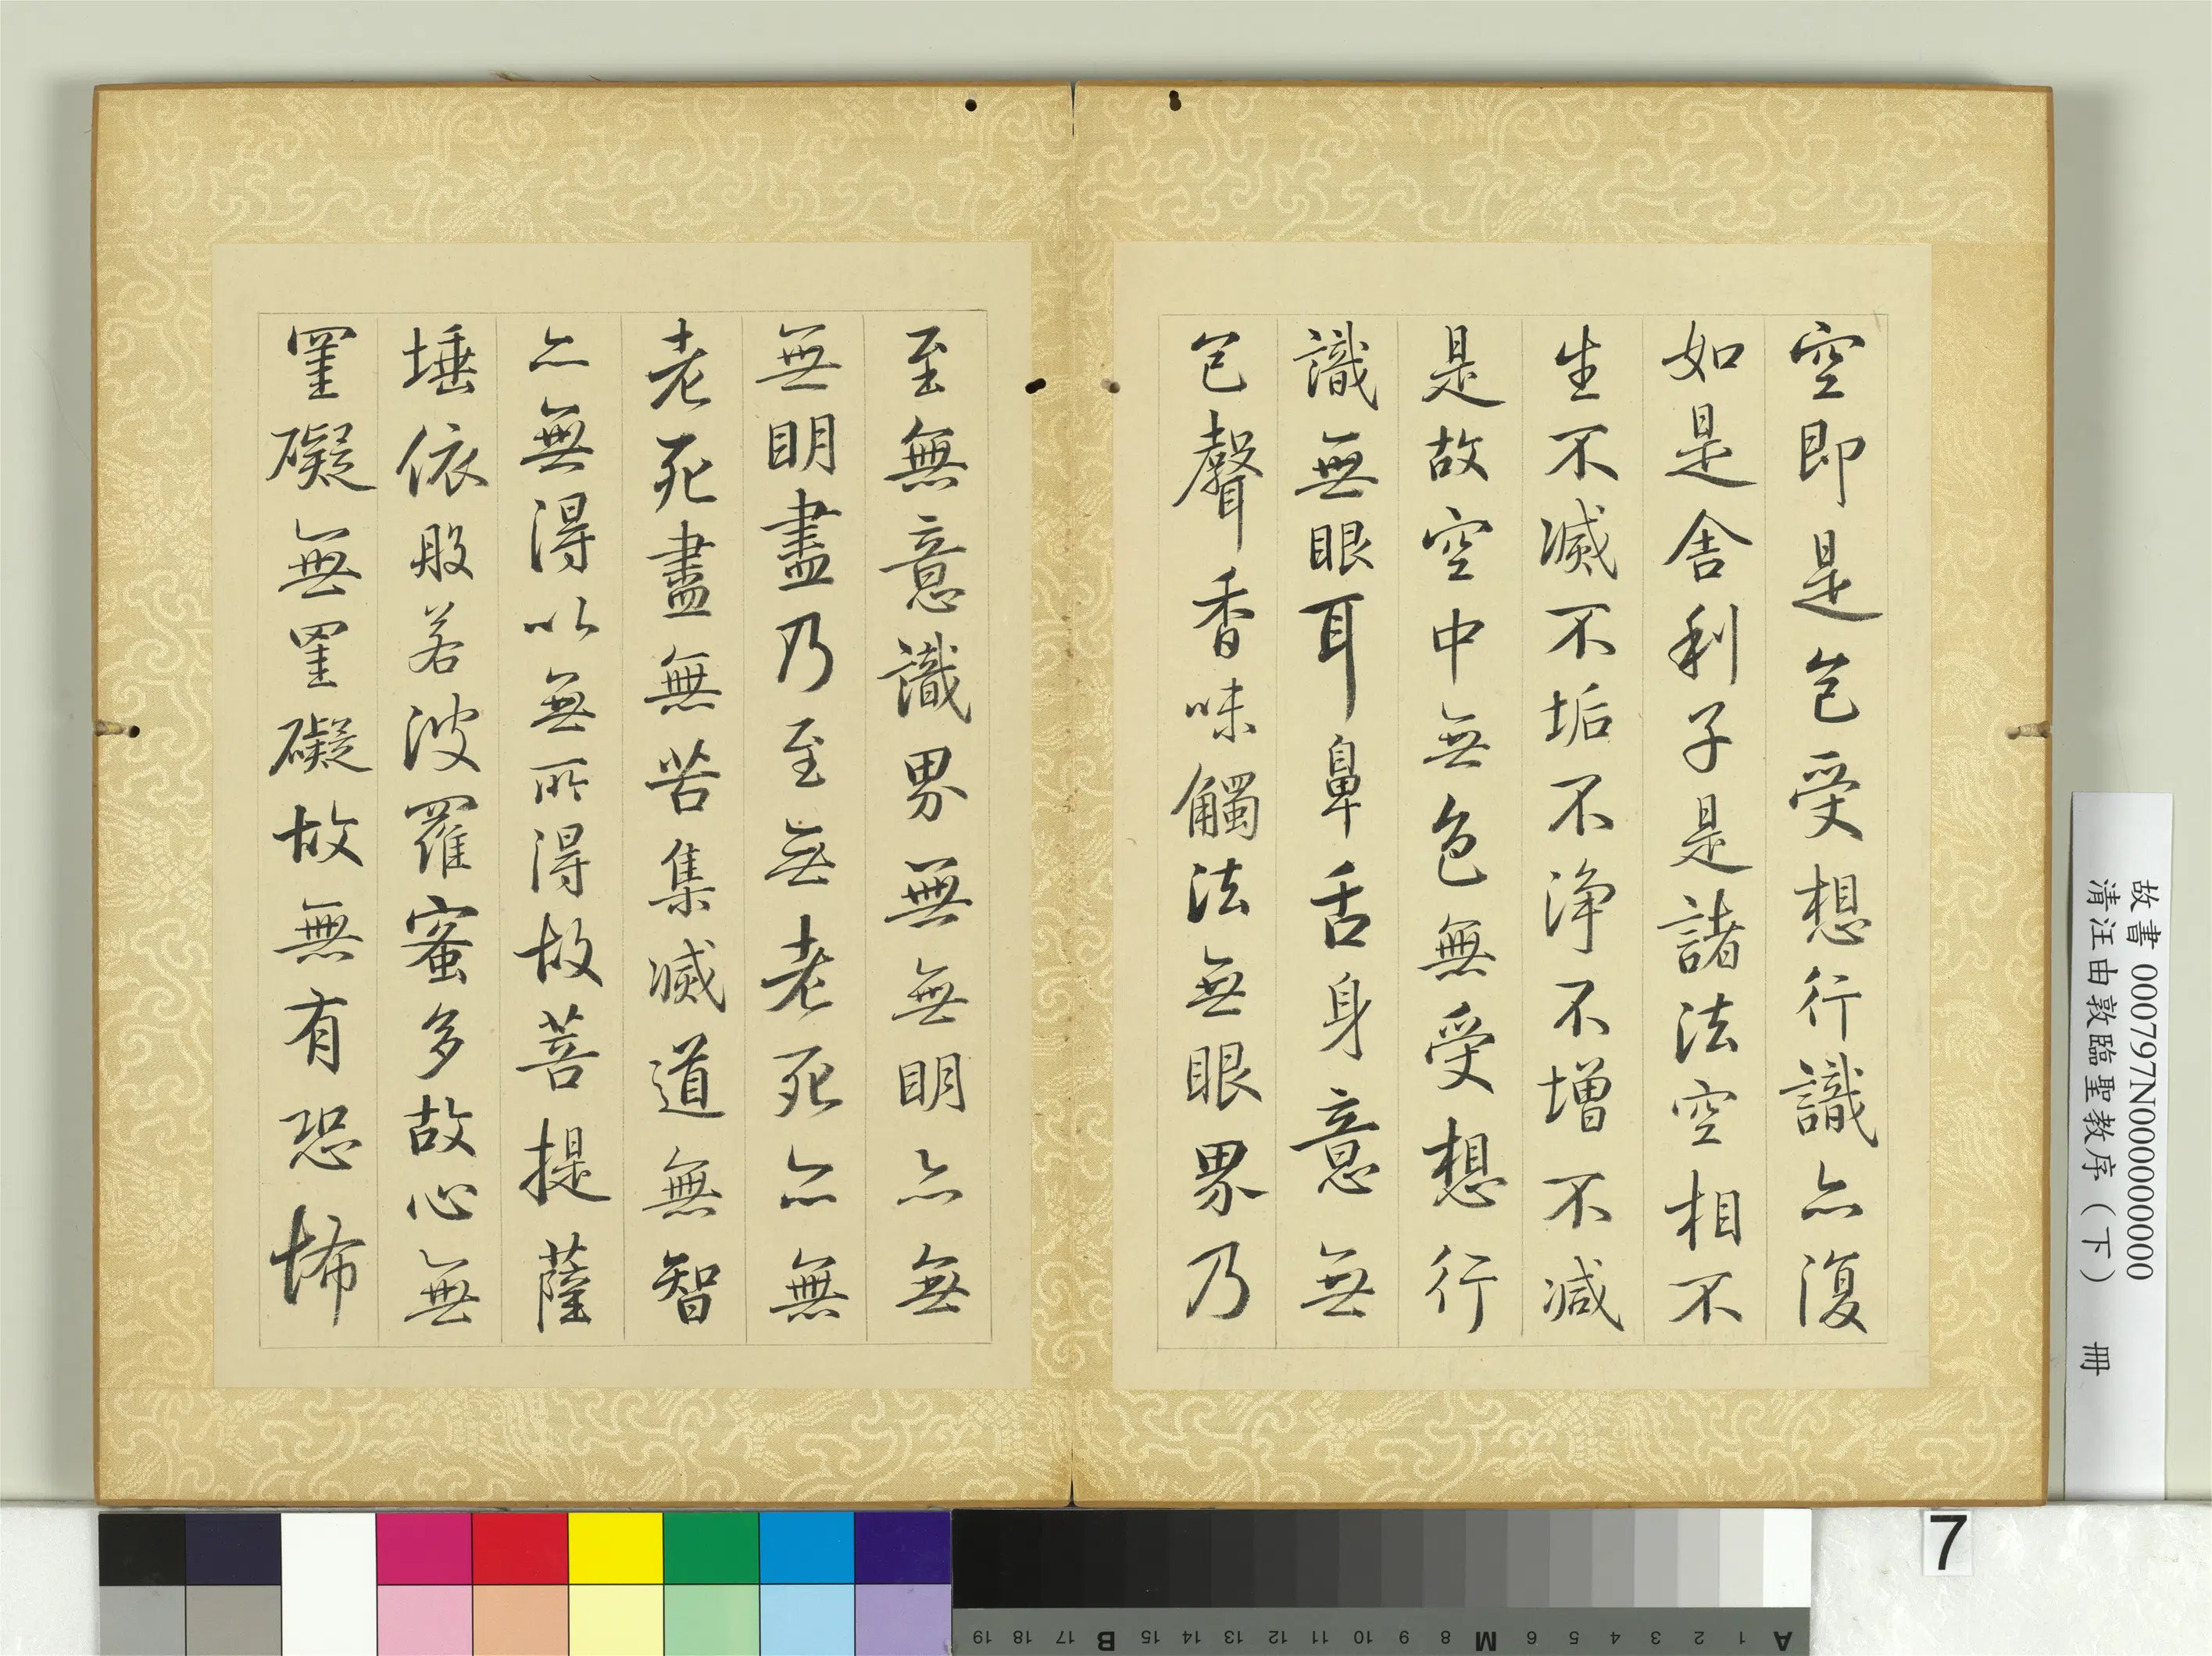 空即是色受想行識亦復
如是舍利子是諸法空相不
生不滅不垢不淨不增不減
是故空中無色無受想行
識無眼耳鼻舌身意無
色聲香味觸法無眼界乃
至無意識界無無明亦無
無明盡乃至無老死亦無
老死盡無苦集滅道無智
亦無得以無所得故菩提薩
埵依般若波羅蜜多故心無
罣礙無罣礙故無有恐怖
故書 000797N000000000
清汪由敦臨聖教序(下) 冊
7
A 1 2 3 4 5 6 M 8 9 10 11 12 13 14 15 B 17 18 19